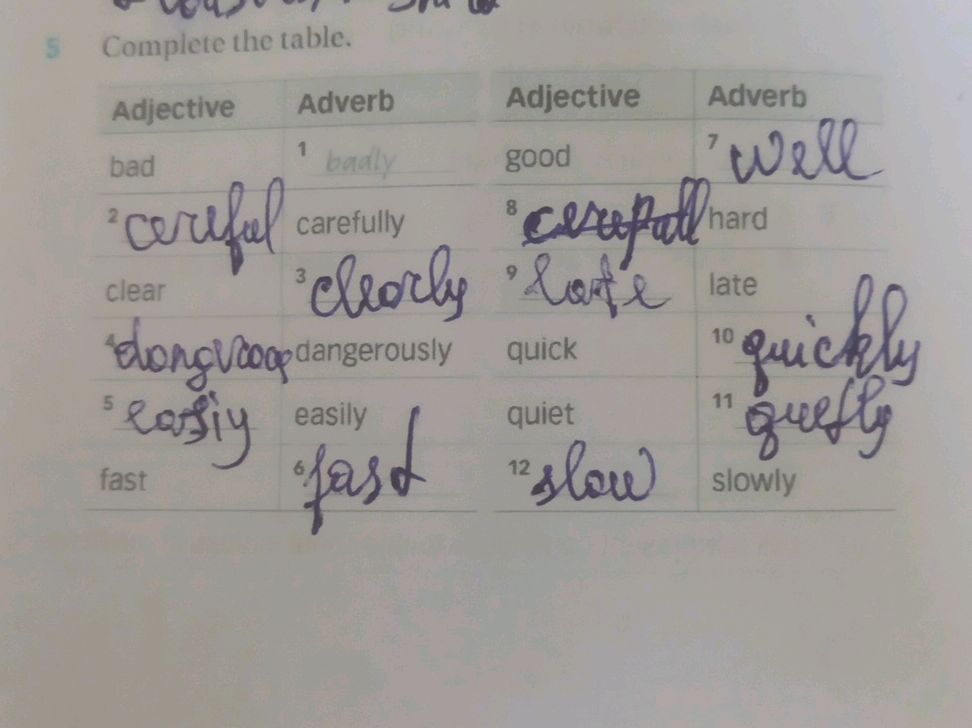 5 Complete the table.
Adjective Adverb Adjective Adverb
bad 1 badly good 7 well
2 careful carefully 8 hard
clear 3 clearly 9 late late
4 dangerously quick 10 quickly
5 easiy easily quiet 11
fast 6 fast 12 slow slowly